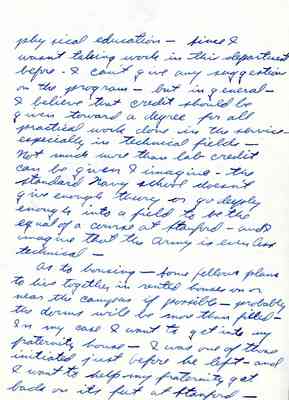 physical education - since I
wasn't taking work in this department
before - I can't give any suggestion
on the program - but in general -
I believe that credit should be
given toward a degree for all
practical work done in the service
especially in technical fields -
Not much more than lab credit
can be given I imagine - the
standard Navy school doesn't
give enough theory or go deeply
enough into a field to be the
equal of a course at Stanford - and I
imagine that the Army is even less
technical -
As to housing - some fellows plan
to live together in rented houses on or
near the campus if possible - probably
the dorms will be more than filled -
In my case I want to get into my
fraternity house - I was one of those
initiated just before he left - and
I want to help my fraternity get
back on its feet at Stanford -